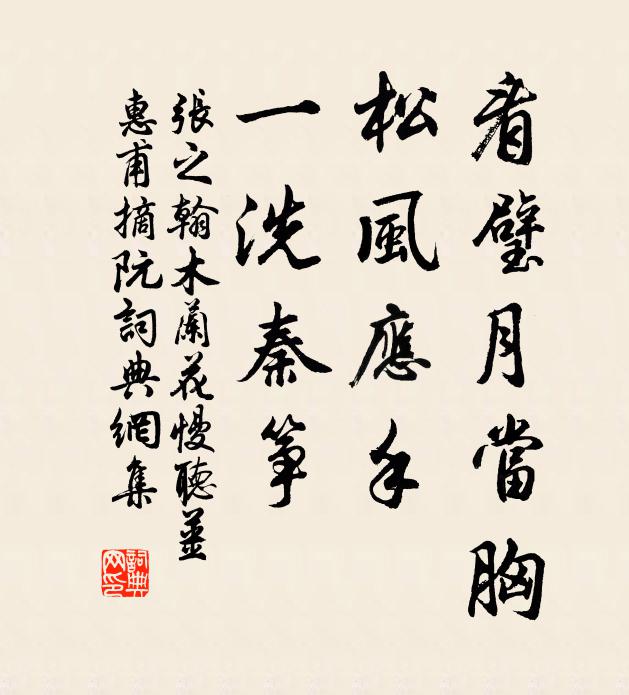 看璧月當胸
松風應手
一洗秦箏
張之翰木蘭花慢聽薑
惠甫摘阮詞典網集
詞典
网印